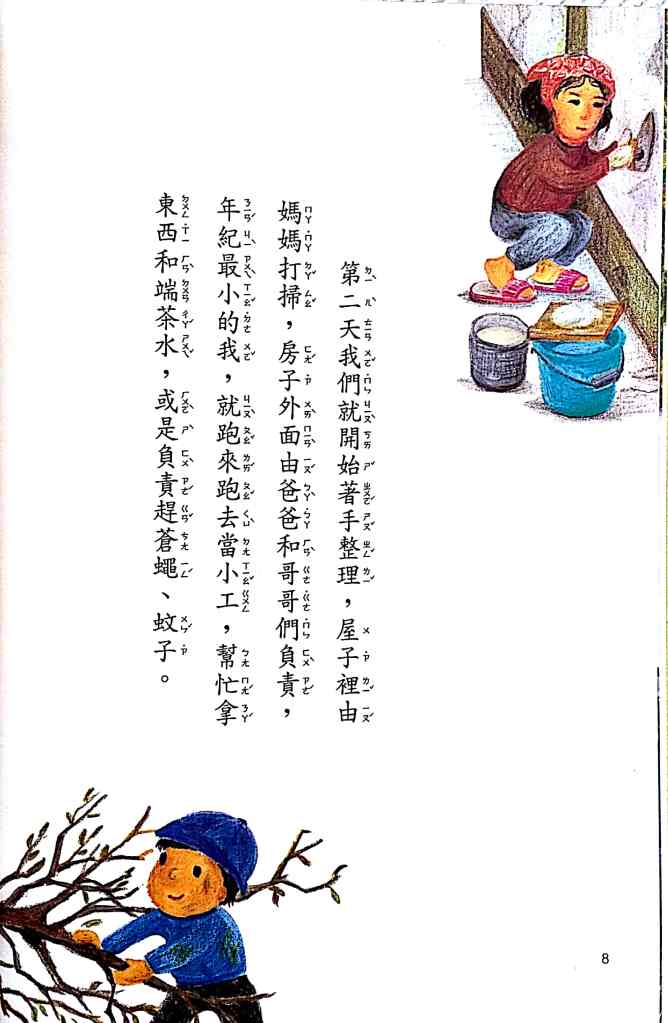 第二天我們就開始著手整理，屋子裡由
媽媽打掃，房子外面由爸爸和哥哥們負責，
年紀最小的我，就跑來跑去當小工，幫忙拿
東西和端茶水，或是負責趕蒼蠅、蚊子。
8